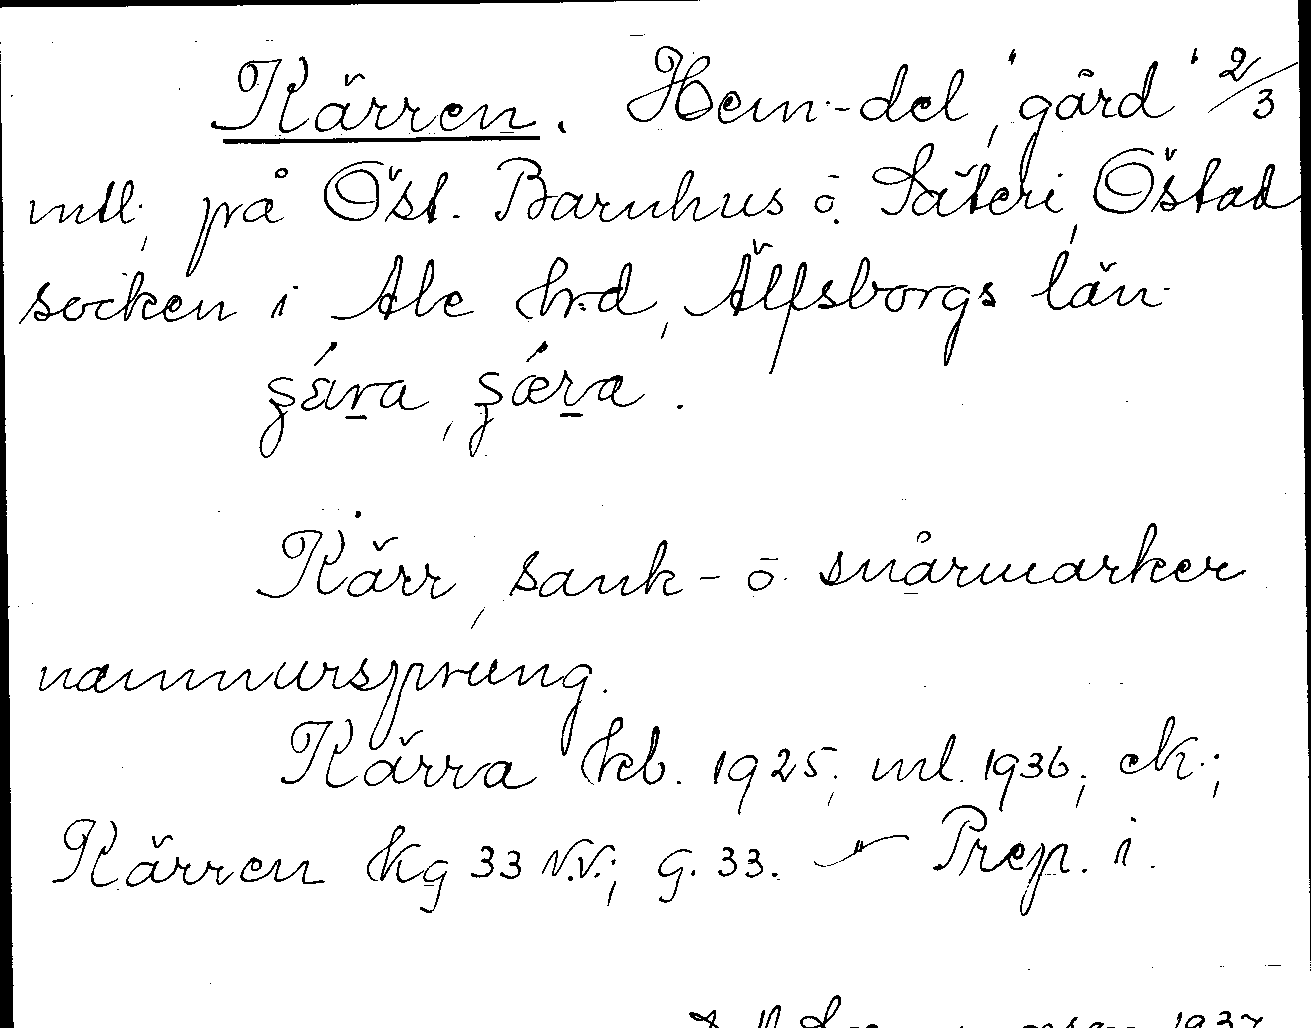 Kärren. Hem.-del, "gård" 2/3
mtl; på Öst. Barnhus o. Säteri, Östad
socken i Ale hrd, Älfsborgs län.
Kärr, sank- o. snårmarker
namnursprung.
Kärra hcb. 1925; ml. 1936; ek.;
Kärren Kg 33 N.V.; G. 33. — " — Prep. i.
1937